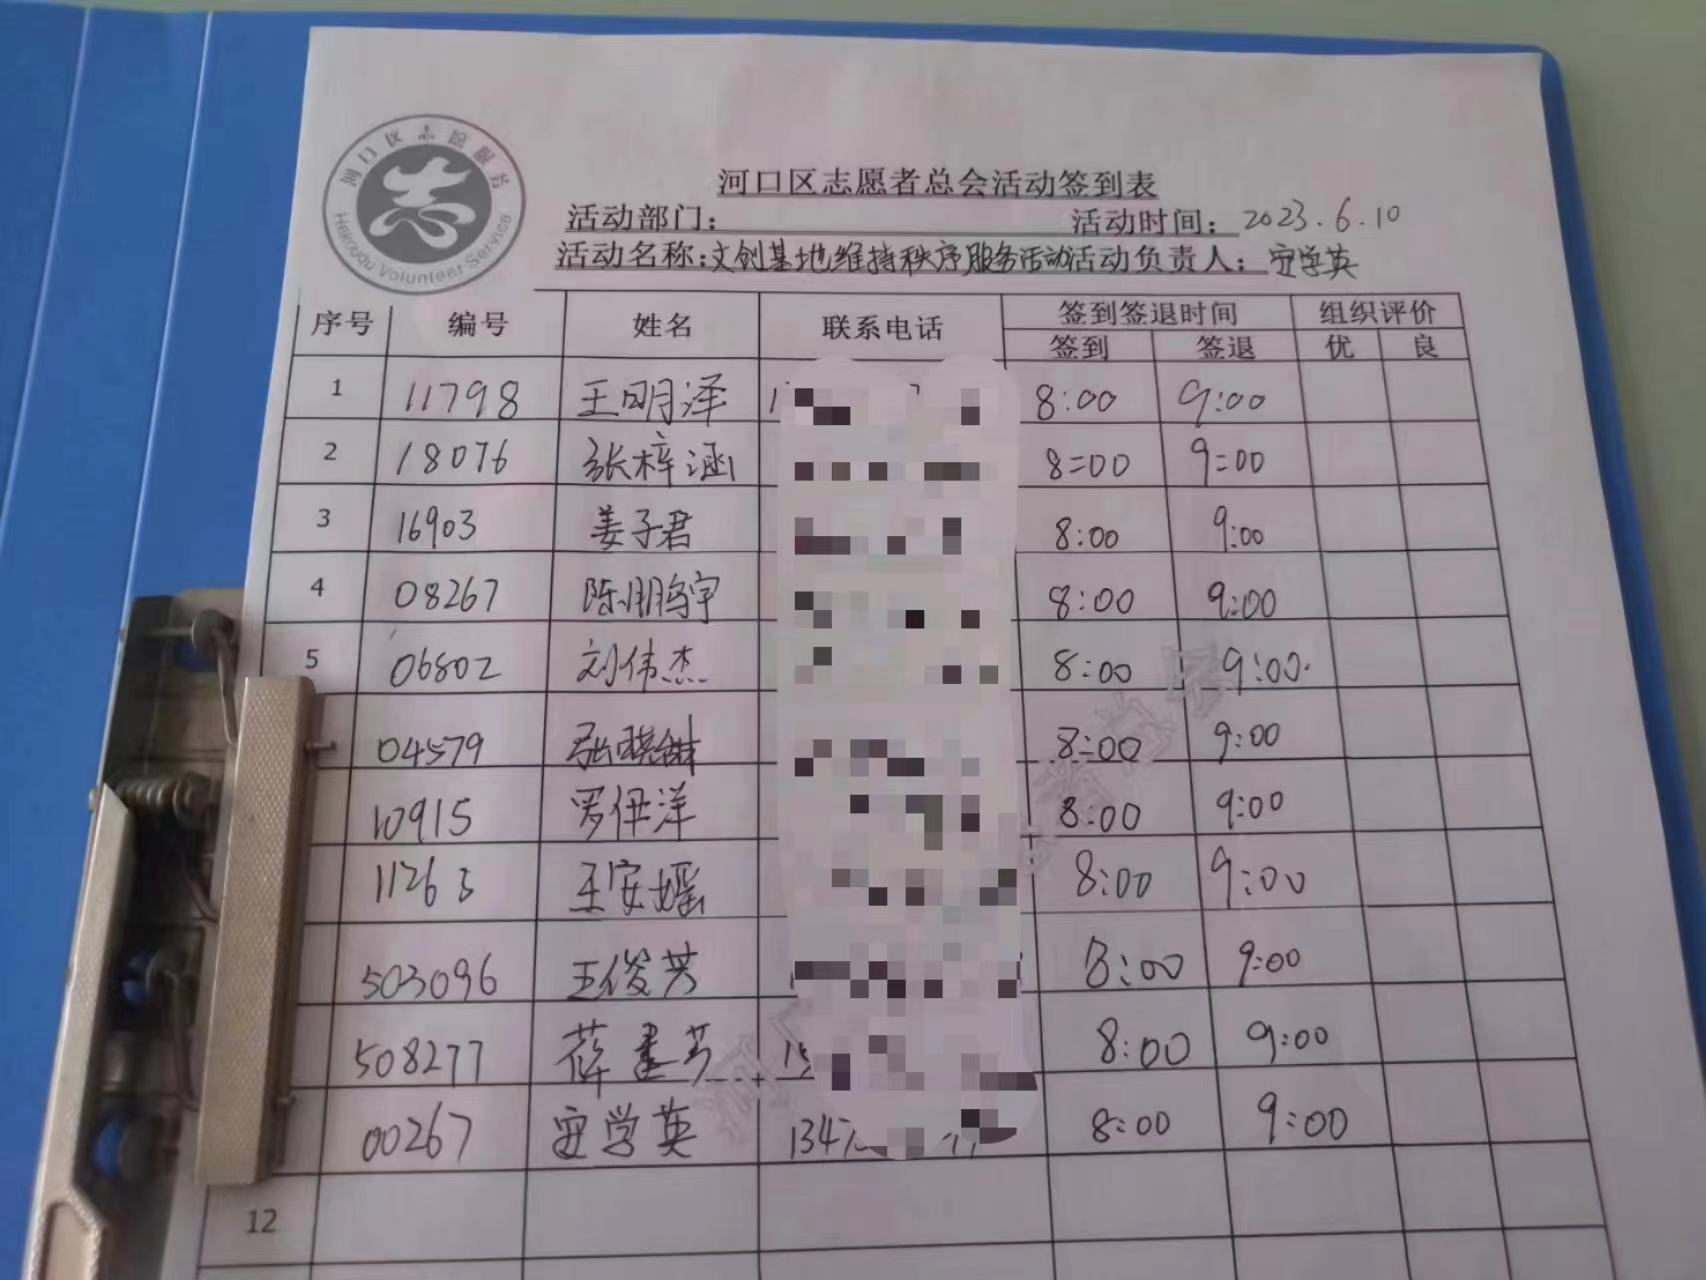 河口区志愿服务
Hekouqu Volunteer Service
河口区志愿者总会活动签到表
活动部门： 活动时间：2023.6.10
活动名称：文创基地维持秩序服务活动 活动负责人：安学英
序号 编号 姓名 联系电话 签到签退时间 组织评价
签到 签退 优 良
1 11798 王明泽 1 8:00 9:00
2 18076 张梓涵 8:00 9:00
3 16903 姜子君 8:00 9:00
4 08267 陈鹏宇 8:00 9:00
5 06802 刘伟杰 8:00 9:00
04579 张晓 8:00 9:00
10915 罗伊洋 8:00 9:00
11263 王安瑶 8:00 9:00
503096 王俊芳 8:00 9:00
508277 薛建芳 15 8:00 9:00
00267 安学英 134 8:00 9:00
12